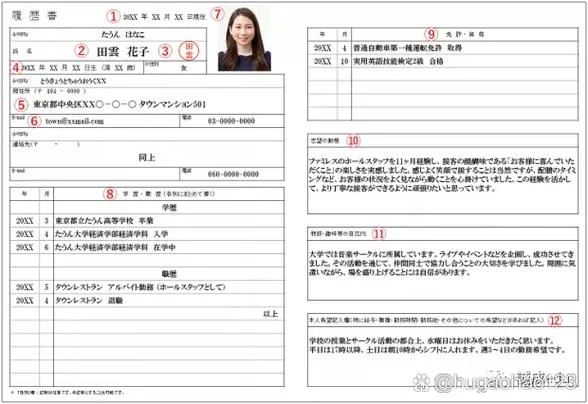 履歴書
① 20XX 年 XX 月 XX 日現在 ⑦
ふりがな たうん はなこ
氏名 ② 田雲 花子 ③ 田雲
④ 20XX 年 XX 月 XX 日生 (満 XX 歳) 女
ふりがな とうきょうとちゅうおうくXX
現住所 (〒 104 - 0000 )
⑤ 東京都中央区XX〇-〇-〇 タウンマンション501
E-mail ⑥ town@xxmail.com 電話 03-0000-0000
ふりがな
連絡先 (〒 - )
同上
E-mail 電話 080-0000-0000
年 月 ⑧ 学歴・職歴 (各別にまとめて書く)
学歴
20XX 3 東京都立たうん高等学校 卒業
20XX 4 たうん大学経済学部経済学科 入学
20XX 6 たうん大学経済学部経済学科 在学中
職歴
20XX 5 タウンレストラン アルバイト勤務 (ホールスタッフとして)
20XX 4 タウンレストラン 退職
以上
年 月 ⑨ 免許・資格
20XX 4 普通自動車第一種運転免許 取得
20XX 10 実用英語技能検定2級 合格
志望の動機 ⑩
ファミレスのホールスタッフを11ヶ月経験し、接客の醍醐味である「お客様に喜んでいた
だくこと」の楽しさを実感しました。感じよく笑顔で接することは当然ですが、配膳のタイミ
ングなど、お客様の状況をよく見ながら動くことを心掛けていました。この経験を活か
して、より丁寧な接客ができるように頑張りたいと思っています。
特技・趣味等の自己PR ⑪
大学では音楽サークルに所属しています。ライブやイベントなどを企画し、成功させてき
ました。その活動を通じて、仲間同士で協力し合うことの大切さを学びました。周囲に気
遣いながら、場を盛り上げることには自信があります。
本人希望記入欄 (特に給与・職種・勤務時間・勤務地・その他についての希望などがあれば記入) ⑫
学校の授業とサークル活動の都合上、水曜日はお休みをいただきたく思います。
平日は17時以降、土日は朝10時からシフトに入れます。週3~4日の勤務希望です。